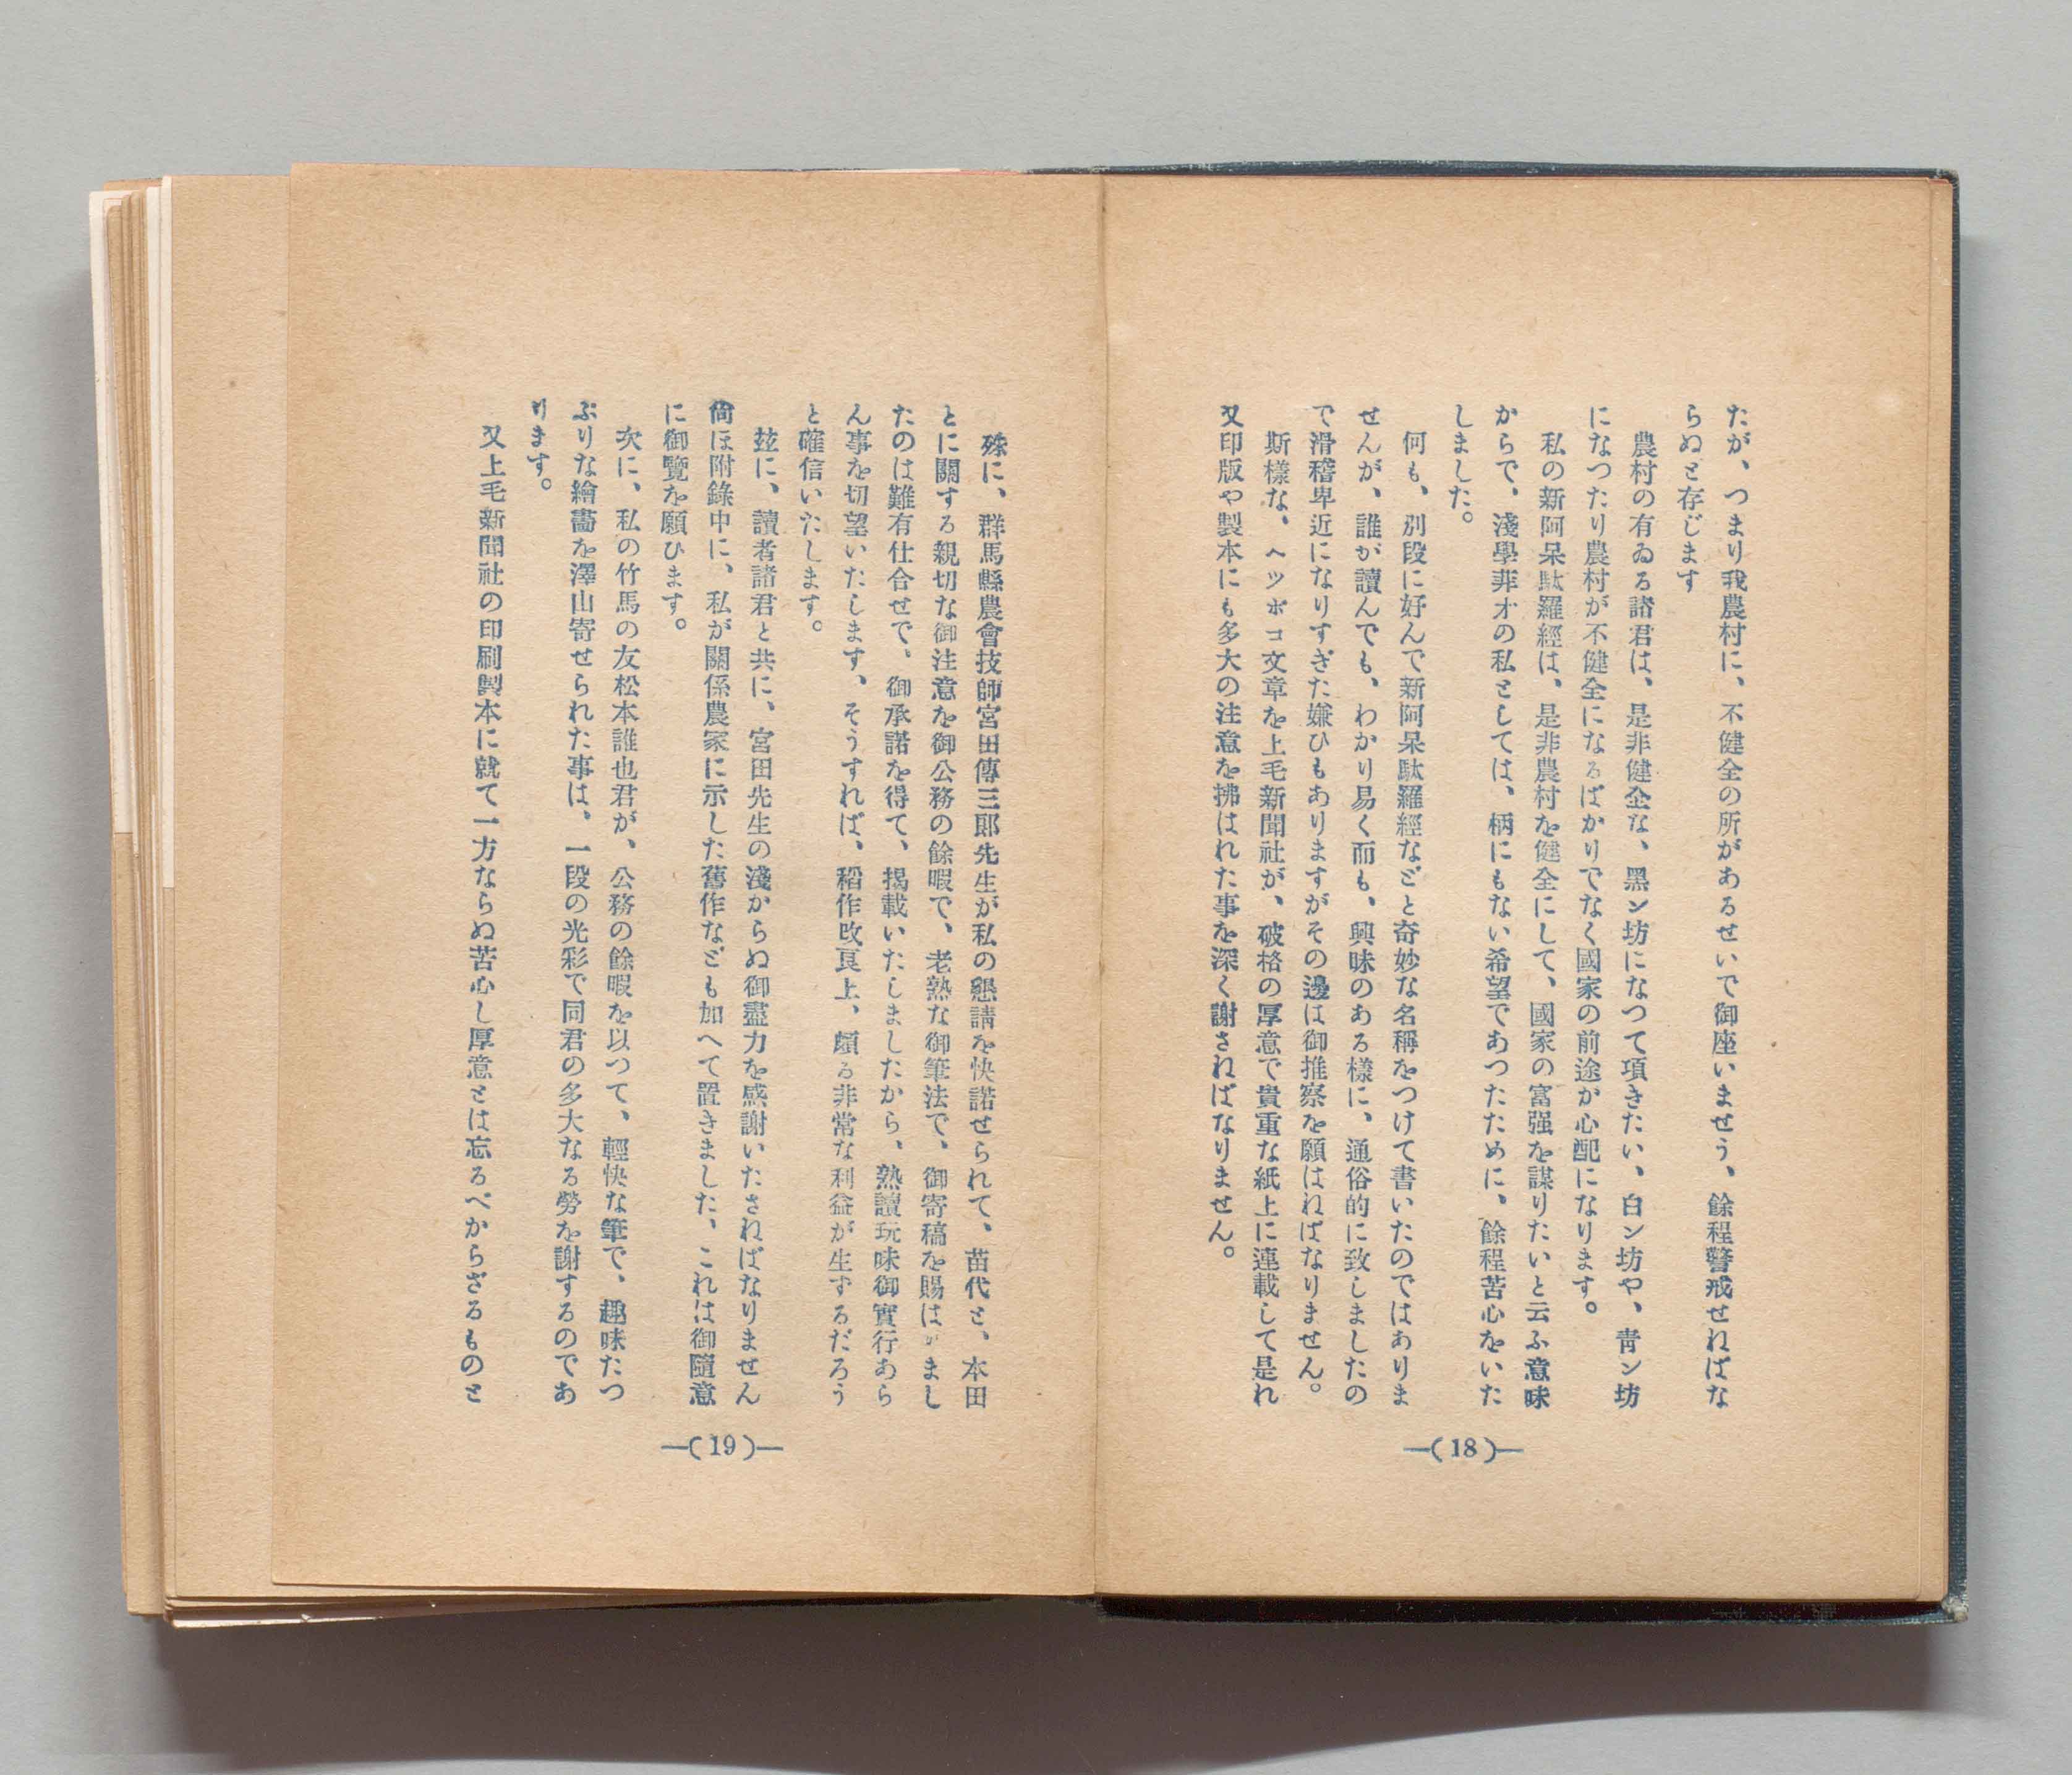 たが、つまり我農村に、不健全の所があるせいで御座いませう、餘程警戒せねばな
らぬと存じます
農村の有ゐる諸君は、是非健全な、黑ン坊になつて項きたい、白ン坊や、靑ン坊
になつたり農村が不健全になるばかりでなく國家の前途か心配になります。
私の新阿呆駄羅經は、是非農村を健全にして、國家の富强を謀りたいと云ふ意味
からで、淺學菲才の私としては、柄にもない希望であつたために、餘程苦心をいた
しました。
何も、別段に好んで新阿呆駄羅經などと奇妙な名稱をつけて書いたのではありま
せんが、誰が讀んでも、わかり易く而も、興味のある樣に、通俗的に致しましたの
で滑稽卑近になりすぎた嫌ひもありますがその邊は御推察を願はねばなりません。
斯樣な、ヘツポコ文章を上毛新聞社が、破格の厚意で貴重な紙上に連載して是れ
又印版や製本にも多大の注意を拂はれた事を深く謝さねばなりません。
—(18)—
殊に、群馬縣農會技師宮田傳三郎先生が私の懇請を快諾せられて、苗代と、本田
とに關する親切な御注意を御公務の餘暇で、老熟な御筆法で、御寄稿を賜はがまし
たのは難有仕合せで、御承諾を得て、揭載いたしましたから、熟讀玩味御實行あら
ん事を切望いたします、そうすれば、稻作改良上、頗る非常な利益が生ずるだろう
と確信いたします。
玆に、讀者諸君と共に、宮田先生の淺からぬ御盡力を感謝いたさねばなりません
尙ほ附錄中に、私が關係農家に示した舊作なども加へて置きました、これは御隨意
に御覽を願ひます。
次に、私の竹馬の友松本誰也君が、公務の餘暇を以つて、輕快な筆で、趣味たつ
ぷりな繪畵を澤山寄せられた事は、一段の光彩で同君の多大なる勞を謝するのであ
ります。
又上毛新聞社の印刷製本に就て一方ならぬ苦心し厚意とは忘るべからざるものと
—(19)—